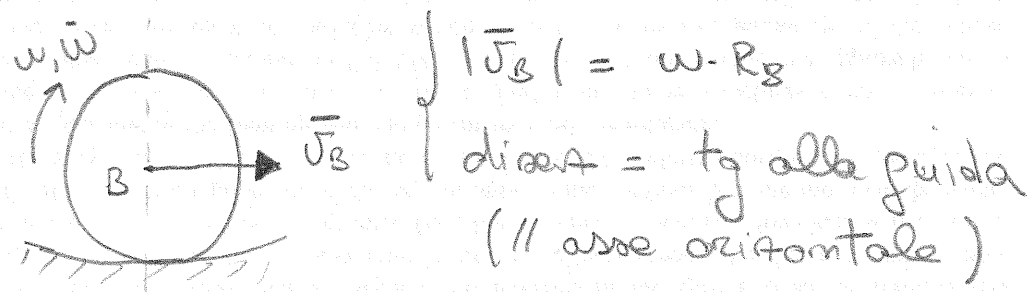 ω, ω̄
B
v̄_B
{ |v̄_B| = ω · R_B
direz = tg alla guida
(// asse orizzontale)